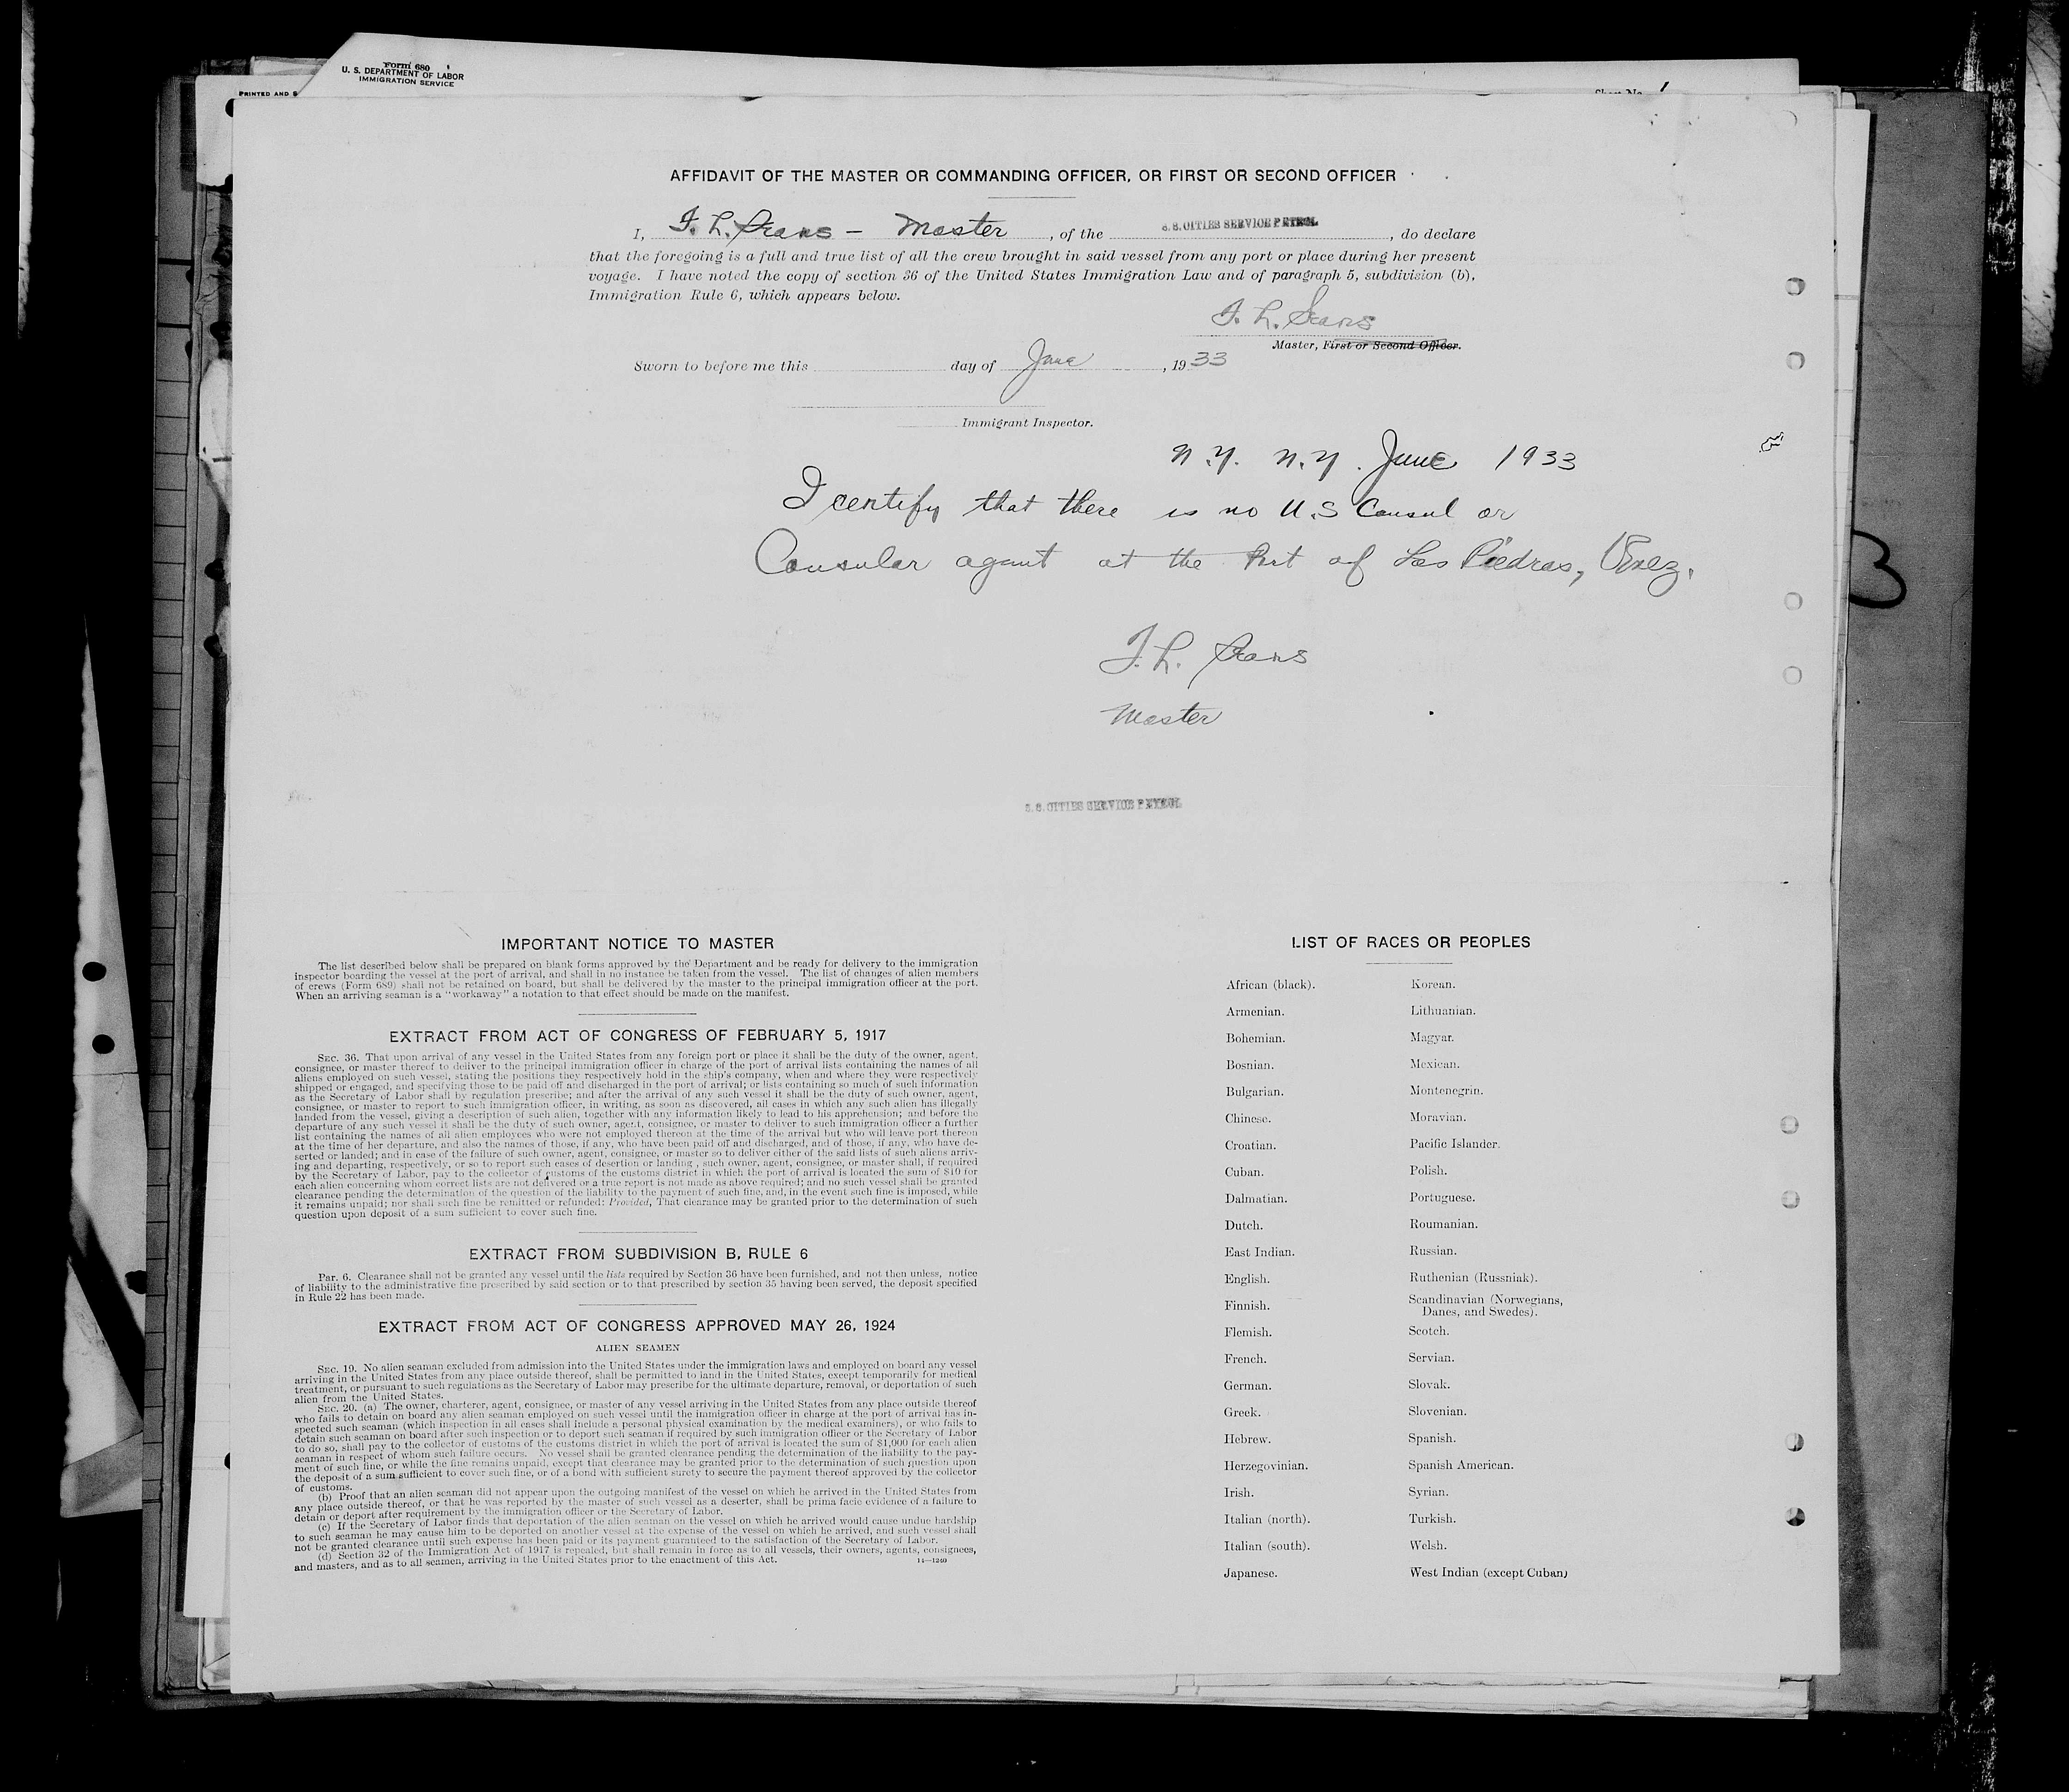 Form 680
U. S. DEPARTMENT OF LABOR
IMMIGRATION SERVICE
PRINTED AND S
1
AFFIDAVIT OF THE MASTER OR COMMANDING OFFICER, OR FIRST OR SECOND OFFICER
I, F. L. Sears - Master, of the S.S. CITIES SERVICE PETROL, do declare
that the foregoing is a full and true list of all the crew brought in said vessel from any port or place during her present
voyage. I have noted the copy of section 36 of the United States Immigration Law and of paragraph 5, subdivision (b),
Immigration Rule 6, which appears below.
F. L. Sears
Master, First or Second Officer.
Sworn to before me this day of June, 1933
Immigrant Inspector.
N.Y. N.Y. June 1933
I certify that there is no U.S Consul or
Consular agent at the Port of Las Piedras, Venez.
3
F. L. Sears
Master
S.S. CITIES SERVICE PETROL
IMPORTANT NOTICE TO MASTER
The list described below shall be prepared on blank forms approved by the Department and be ready for delivery to the immigration
inspector boarding the vessel at the port of arrival, and shall in no instance be taken from the vessel. The list of changes of alien members
of crews (Form 689) shall not be retained on board, but shall be delivered by the master to the principal immigration officer at the port.
When an arriving seaman is a "workaway" a notation to that effect should be made on the manifest.
EXTRACT FROM ACT OF CONGRESS OF FEBRUARY 5, 1917
SEC. 36. That upon arrival of any vessel in the United States from any foreign port or place it shall be the duty of the owner, agent,
consignee, or master thereof to deliver to the principal immigration officer in charge of the port of arrival lists containing the names of all
aliens employed on such vessel, stating the positions they respectively hold in the ship's company, when and where they were respectively
shipped or engaged, and specifying those to be paid off and discharged in the port of arrival; or lists containing so much of such information
as the Secretary of Labor shall by regulation prescribe; and after the arrival of any such vessel it shall be the duty of such owner, agent,
consignee, or master to report to such immigration officer, in writing, as soon as discovered, all cases in which any such alien has illegally
landed from the vessel, giving a description of such alien, together with any information likely to lead to his apprehension; and before the
departure of any such vessel it shall be the duty of such owner, agent, consignee, or master to deliver to such immigration officer a further
list containing the names of all alien employees who were not employed thereon at the time of the arrival but who will leave port thereon
at the time of her departure, and also the names of those, if any, who have been paid off and discharged, and of those, if any, who have de-
serted or landed; and in case of the failure of such owner, agent, consignee, or master so to deliver either of the said lists of such aliens arriv-
ing and departing, respectively, or so to report such cases of desertion or landing, such owner, agent, consignee, or master shall, if required
by the Secretary of Labor, pay to the collector of customs of the customs district in which the port of arrival is located the sum of $10 for
each alien concerning whom correct lists are not delivered or a true report is not made as above required; and no such vessel shall be granted
clearance pending the determination of the question of the liability to the payment of such fine, and, in the event such fine is imposed, while
it remains unpaid; nor shall such fine be remitted or refunded: Provided, That clearance may be granted prior to the determination of such
question upon deposit of a sum sufficient to cover such fine.
EXTRACT FROM SUBDIVISION B, RULE 6
Par. 6. Clearance shall not be granted any vessel until the lists required by Section 36 have been furnished, and not then unless, notice
of liability to the administrative fine prescribed by said section or to that prescribed by section 35 having been served, the deposit specified
in Rule 22 has been made.
EXTRACT FROM ACT OF CONGRESS APPROVED MAY 26, 1924
ALIEN SEAMEN
SEC. 19. No alien seaman excluded from admission into the United States under the immigration laws and employed on board any vessel
arriving in the United States from any place outside thereof, shall be permitted to land in the United States, except temporarily for medical
treatment, or pursuant to such regulations as the Secretary of Labor may prescribe for the ultimate departure, removal, or deportation of such
alien from the United States.
SEC. 20. (a) The owner, charterer, agent, consignee, or master of any vessel arriving in the United States from any place outside thereof
who fails to detain on board any alien seaman employed on such vessel until the immigration officer in charge at the port of arrival has in-
spected such seaman (which inspection in all cases shall include a personal physical examination by the medical examiners), or who fails to
detain such seaman on board after such inspection or to deport such seaman if required by such immigration officer or the Secretary of Labor
to do so, shall pay to the collector of customs of the customs district in which the port of arrival is located the sum of $1,000 for each alien
seaman in respect of whom such failure occurs. No vessel shall be granted clearance pending the determination of the liability to the pay-
ment of such fine, or while the fine remains unpaid, except that clearance may be granted prior to the determination of such question upon
the deposit of a sum sufficient to cover such fine, or of a bond with sufficient surety to secure the payment thereof approved by the collector
of customs.
(b) Proof that an alien seaman did not appear upon the outgoing manifest of the vessel on which he arrived in the United States from
any place outside thereof, or that he was reported by the master of such vessel as a deserter, shall be prima facie evidence of a failure to
detain or deport after requirement by the immigration officer or the Secretary of Labor.
(c) If the Secretary of Labor finds that deportation of the alien seaman on the vessel on which he arrived would cause undue hardship
to such seaman he may cause him to be deported on another vessel at the expense of the vessel on which he arrived, and such vessel shall
not be granted clearance until such expense has been paid or its payment guaranteed to the satisfaction of the Secretary of Labor.
(d) Section 32 of the Immigration Act of 1917 is repealed, but shall remain in force as to all vessels, their owners, agents, consignees,
and masters, and as to all seamen, arriving in the United States prior to the enactment of this Act. 14—1240
LIST OF RACES OR PEOPLES
African (black). Korean.
Armenian. Lithuanian.
Bohemian. Magyar.
Bosnian. Mexican.
Bulgarian. Montenegrin.
Chinese. Moravian.
Croatian. Pacific Islander.
Cuban. Polish.
Dalmatian. Portuguese.
Dutch. Roumanian.
East Indian. Russian.
English. Ruthenian (Russniak).
Finnish. Scandinavian (Norwegians,
Danes, and Swedes).
Flemish. Scotch.
French. Servian.
German. Slovak.
Greek. Slovenian.
Hebrew. Spanish.
Herzegovinian. Spanish American.
Irish. Syrian.
Italian (north). Turkish.
Italian (south). Welsh.
Japanese. West Indian (except Cuban)